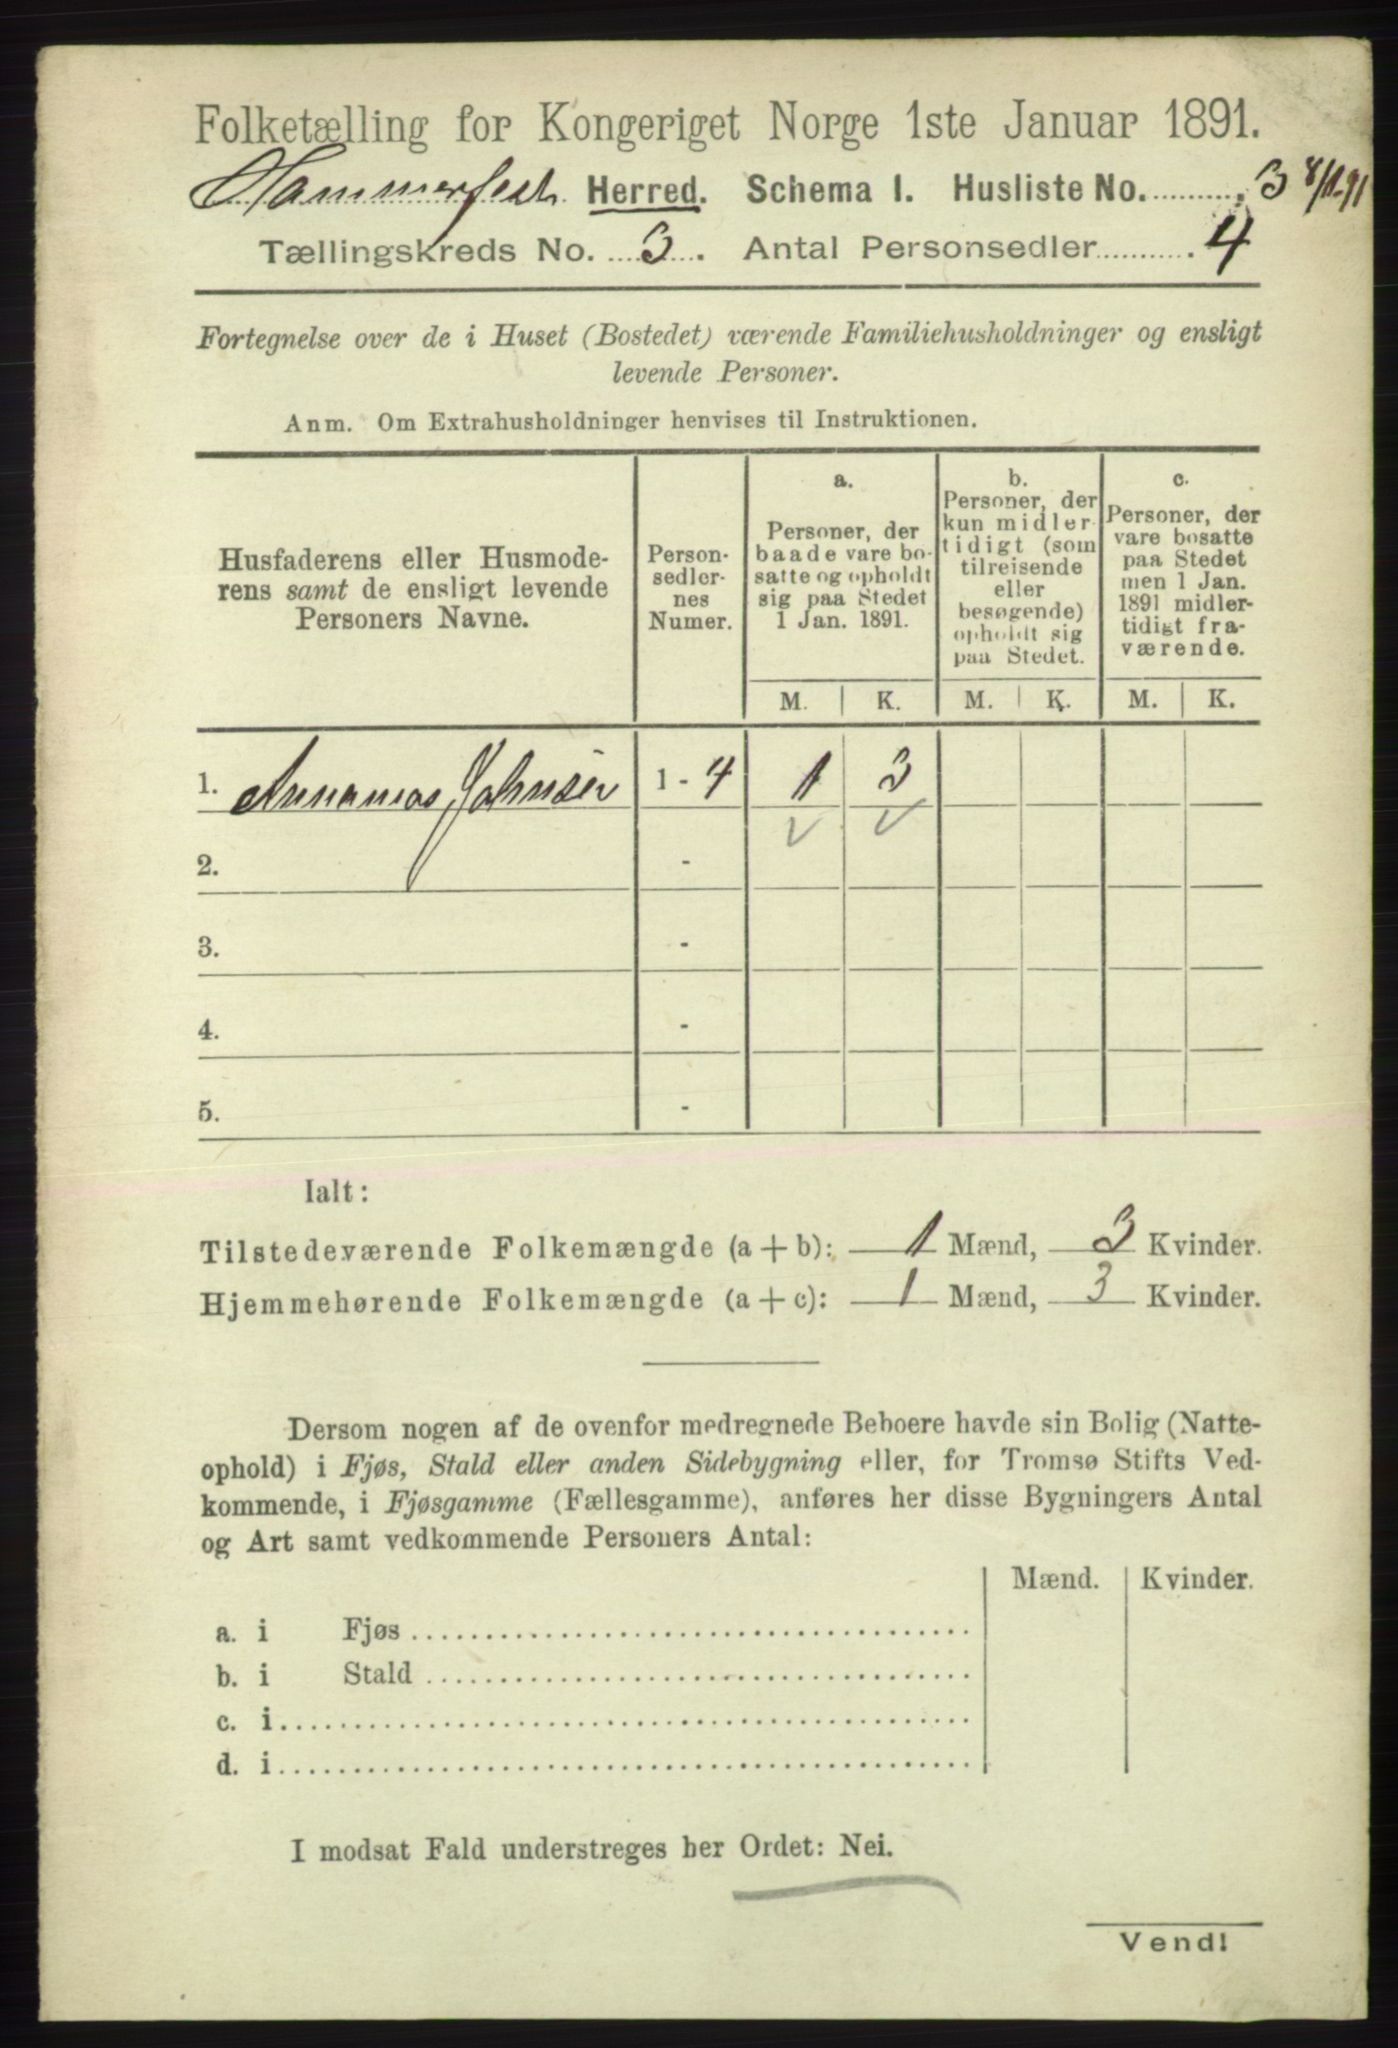 Folketælling for Kongeriget Norge 1ste Januar 1891.
Hammerfest Herred. Schema I. Husliste No. 3 8/11-91
Tællingskreds No. 3. Antal Personsedler 4
Fortegnelse over de i Huset (Bostedet) værende Familiehusholdninger og ensligt
levende Personer.
Anm. Om Extrahusholdninger henvises til Instruktionen.
Husfaderens eller Husmode-
rens samt de ensligt levende
Personers Navne.
Person-
sedler-
nes
Numer.
a.
Personer, der
baade vare bo-
satte og opholdt
sig paa Stedet
1 Jan. 1891.
b.
Personer, der
kun midler-
tidigt (som
tilreisende
eller
besøgende)
opholdt sig
paa Stedet.
c.
Personer, der
vare bosatte
paa Stedet
men 1 Jan.
1891 midler-
tidigt fra-
værende.
M. K. M. K. M. K.
1. Annanias Johnsen 1 - 4 1 3
2. -
3. -
4. -
5. -
Ialt:
Tilstedeværende Folkemængde (a + b): 1 Mænd, 3 Kvinder.
Hjemmehørende Folkemængde (a + c): 1 Mænd, 3 Kvinder.
Dersom nogen af de ovenfor medregnede Beboere havde sin Bolig (Natte-
ophold) i Fjøs, Stald eller anden Sidebygning eller, for Tromsø Stifts Ved-
kommende, i Fjøsgamme (Fællesgamme), anføres her disse Bygningers Antal
og Art samt vedkommende Personers Antal:
Mænd. Kvinder.
a. i Fjøs
b. i Stald
c. i
d. i
I modsat Fald understreges her Ordet: Nei.
Vend!